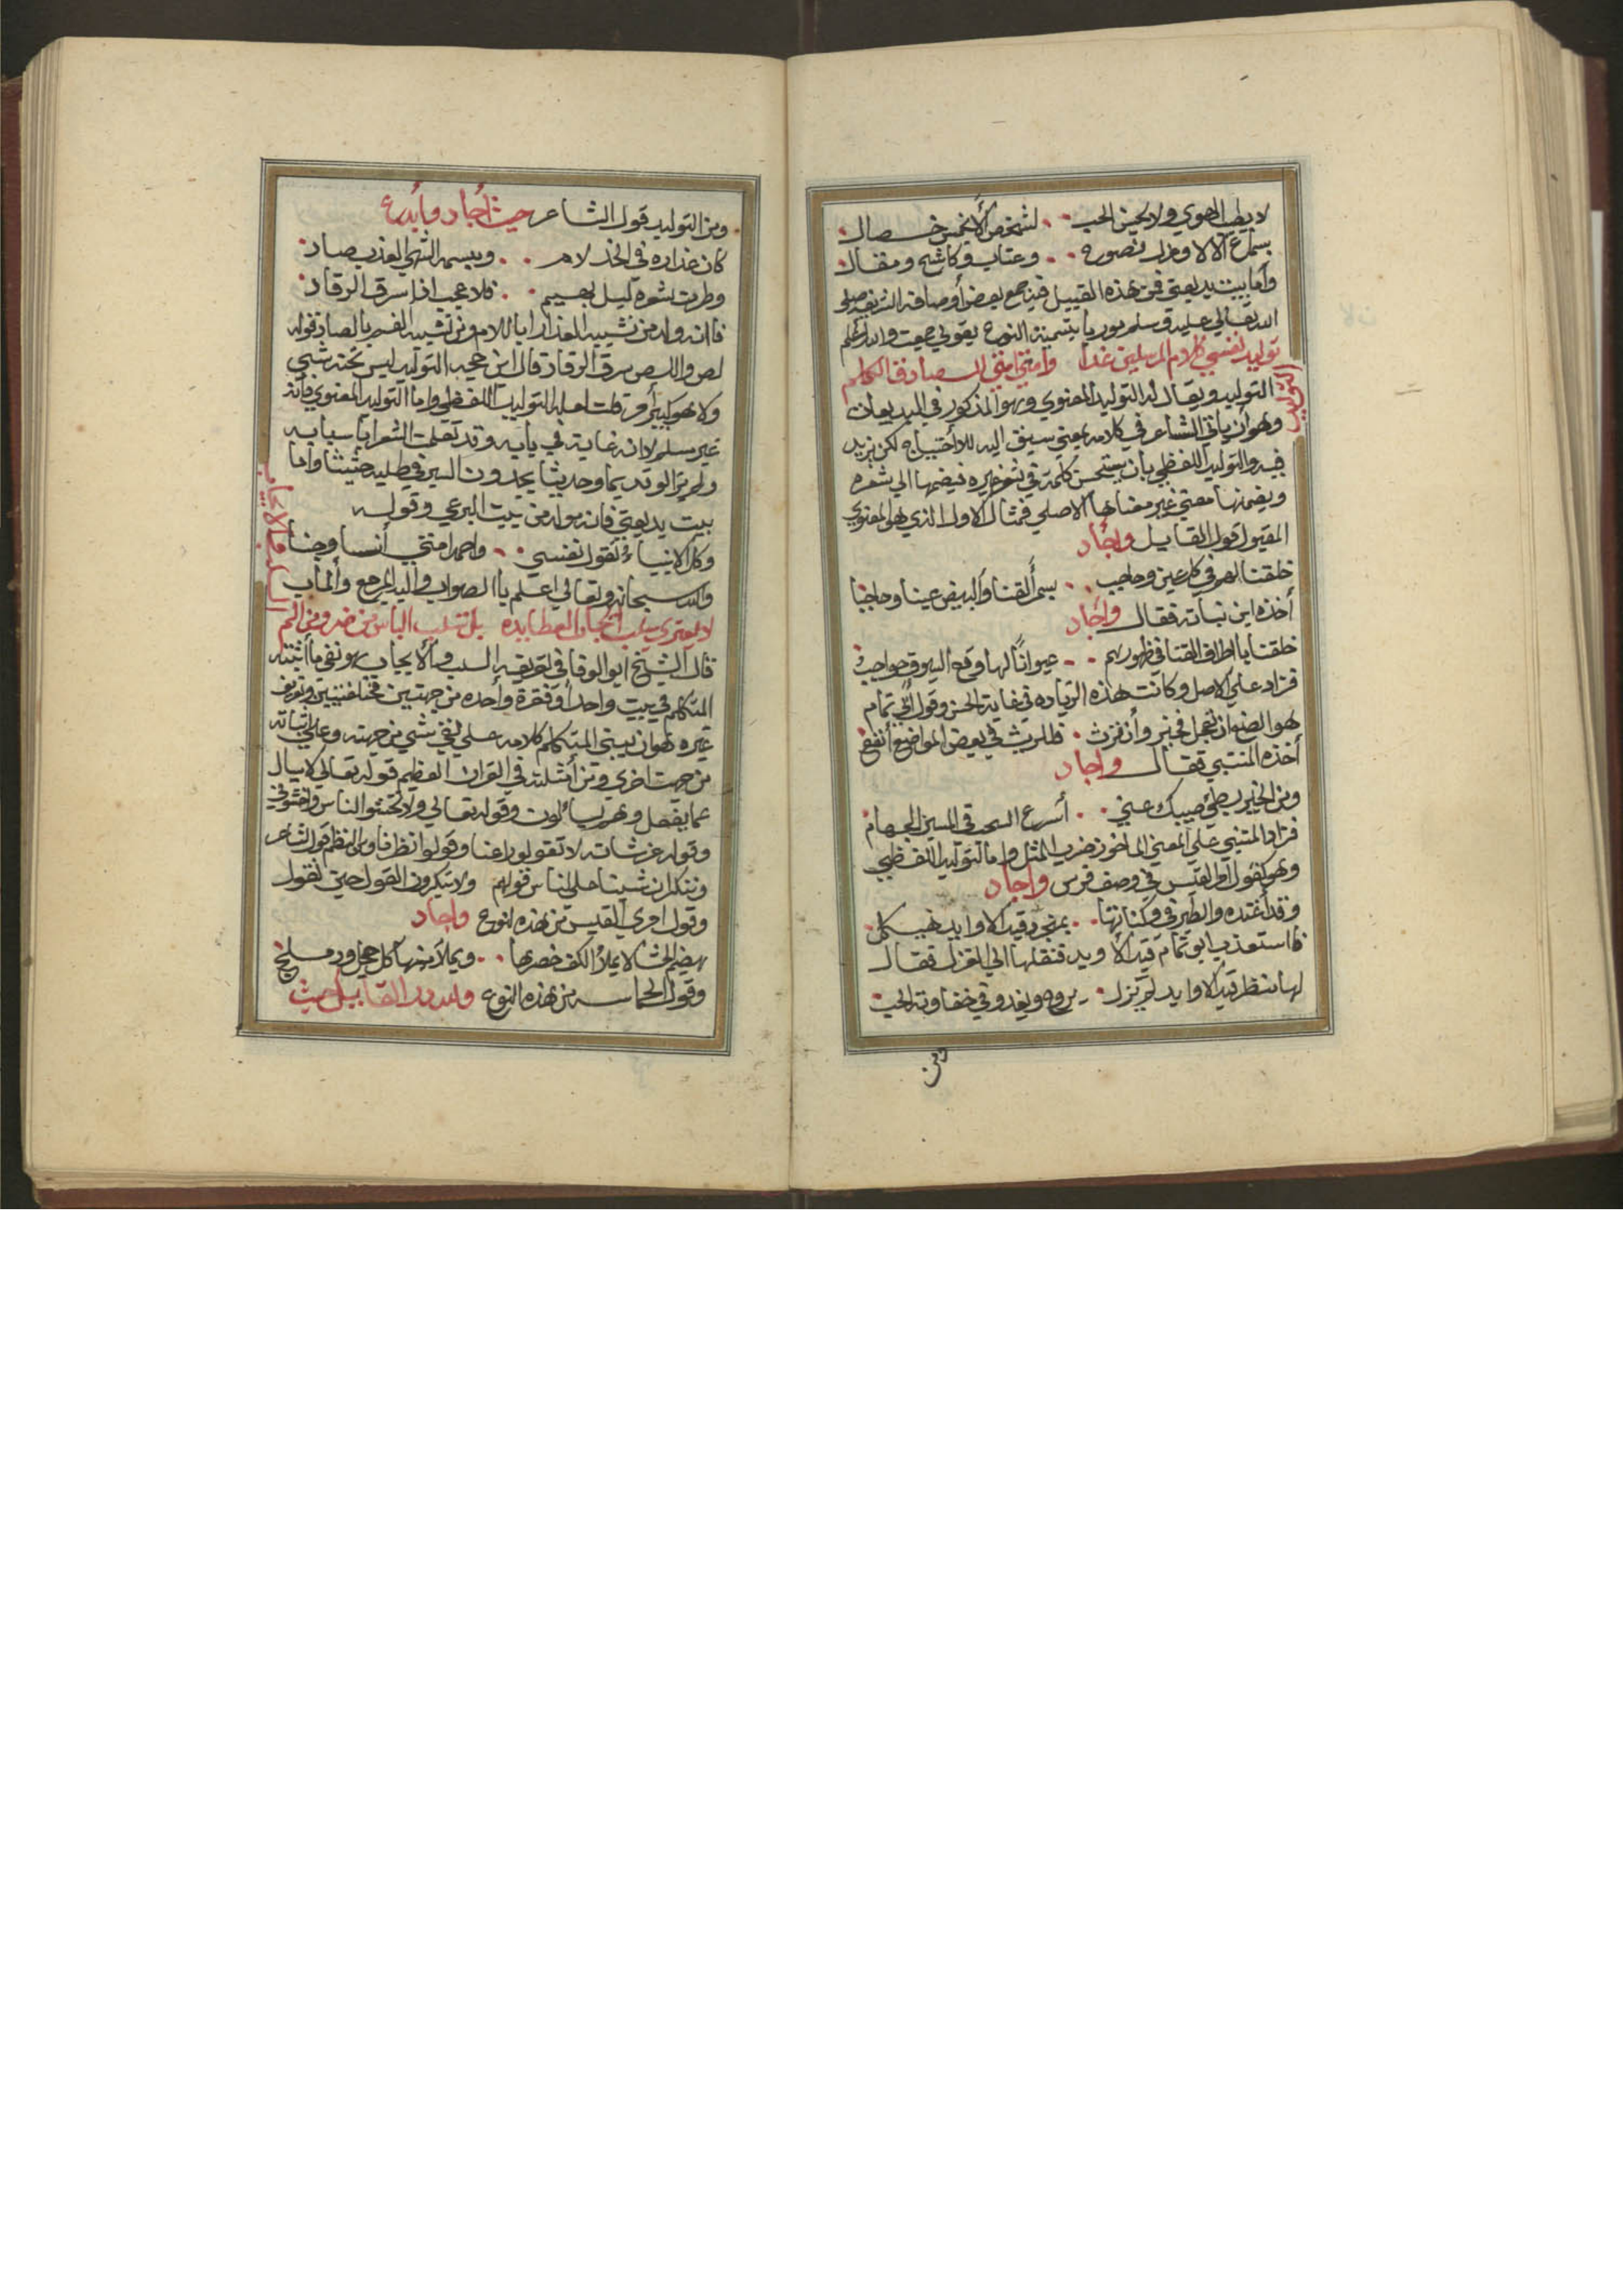 لا يطيب الهوي ولا يحسن الحب لشخص الا بخمس خصال
بسماع الاذا وعذل نصوح وعتاب وكاشح ومقال
وأما بيت بديعيتي فمن هذه القبيل فيه جمع بعض أوصافه الشريفه صلي
الله تعالي عليه وسلم موريا بتسمية النوع بقولي جمعت والله أعلم
توليد نفسي كلام المرسلين غدا وامتي امتي الصادق الكلم
التوليد
التوليد ويقال له التوليد المعنوي وهو المذكور في البديعيات
وهو أن يأتي الشاعر في كلامه بمعني سبق اليه للاحتياج لكن يزيد
فيه والتوليد اللفظي بان يستحسن كلمة في شعر غيره فيضمها الي شعره
ويضمنها معني غير معناها الاصلي فمثال الاول الذي هو المعنوي
المقبول قول القايل وأجاد
خلقنا لهم في كل عين وحاجب بسمر القنا والبيض عينا وحاجبا
أخذه ابن نباته فقال وأجاد
خلقنا باطراف القنا في ظهورهم عيونا لها وقع السيوف حواجب
فزاد علي الاصل وكانت هذه الزياده في غاية الحسن وقول أبي تمام
هو الصنع ان تعجل فخير وأن ترث فللريث في بعض المواضع أنفع
أخذه المتنبي فقال واجاد
ومن الخير بطئ سيبك عني أسرع السحب في المسير الجهام
فزاد المتنبي علي المعني الماخوذ ضرب المثل واما التوليد اللفظي
وهو كقول امرء القيس في وصف فرس واجاد
وقد أغتدي والطير في وكناتها بمنجرد قيد الاوابد هيكل
فاستعذب ابو تمام قيد الاوابد فنقلها الي الغزل فقال
لها منظر قيد الاوابد لم يزل يروح ويغدو في خفاوته الحب
ومن
ومن التوليد قول الشاعر حيث أجاد وأبدع
كان عذاره في الخد لام ومبسمه الشهي العذب صاد
وطرة شعره ليل بهيم فلا عجب اذا سرق الرقاد
فانه ولد من تشبيه العذار باللام ومن تشبيه الفم بالصاد قوله
لص واللص سرق الرقاد قال ابن حجه التوليد ليس تحته شيي
ولا هو كبير أمر قلت لعله التوليد اللفظي واما التوليد المعنوي فانه
غير مسلم لانه غاية في بابه وقد تعلمت الشعرا باسبابه
ولم يزالو قديما وحديثا يجدون السير في طلبه حثيثا واما
بيت بديعيتي فانه مولد من بيت البرعي وقوله
وكل الانبياء تقول نفسي واحمد امتي أنسا وجنا
والله سبحانه وتعالي اعلم بالصواب واليه المرجع والمأب
السلب والايجاب
لا يعتري سلب ايجاب العطا يده بل تسلب الباس من ضر ومن الم
قال الشيخ ابو الوفا في تعريفه السلب والايجاب هو نفي ما أثبته
المتكلم في بيت واحد أو فقرة واحده من جهتين مختلفتيين وتعريف
غيره هو ان يبني المتكلم كلامه علي نفي شئي من جهته وعلي اثباته
من جهت اخري ومن أمثلته في القران العظيم قوله تعالي لا يسال
عما يفعل وهم يسألون وقوله تعالي ولا تخشوا الناس واخشوني
وقوله عز شانه لا تقولو راعنا وقولوا نظرنا ومن النظم قول الشاعر
وننكر ان شيئنا علي الناس قولهم ولا ينكرون القول حين نقول
وقول امرئ القيس من هذه النوع واجاد
هضيم الحشا لا يملأ الكف خصرها ويملأ منها كل حجل ودملج
وقول الحماسه من هذه النوع ولله در القايل حيث